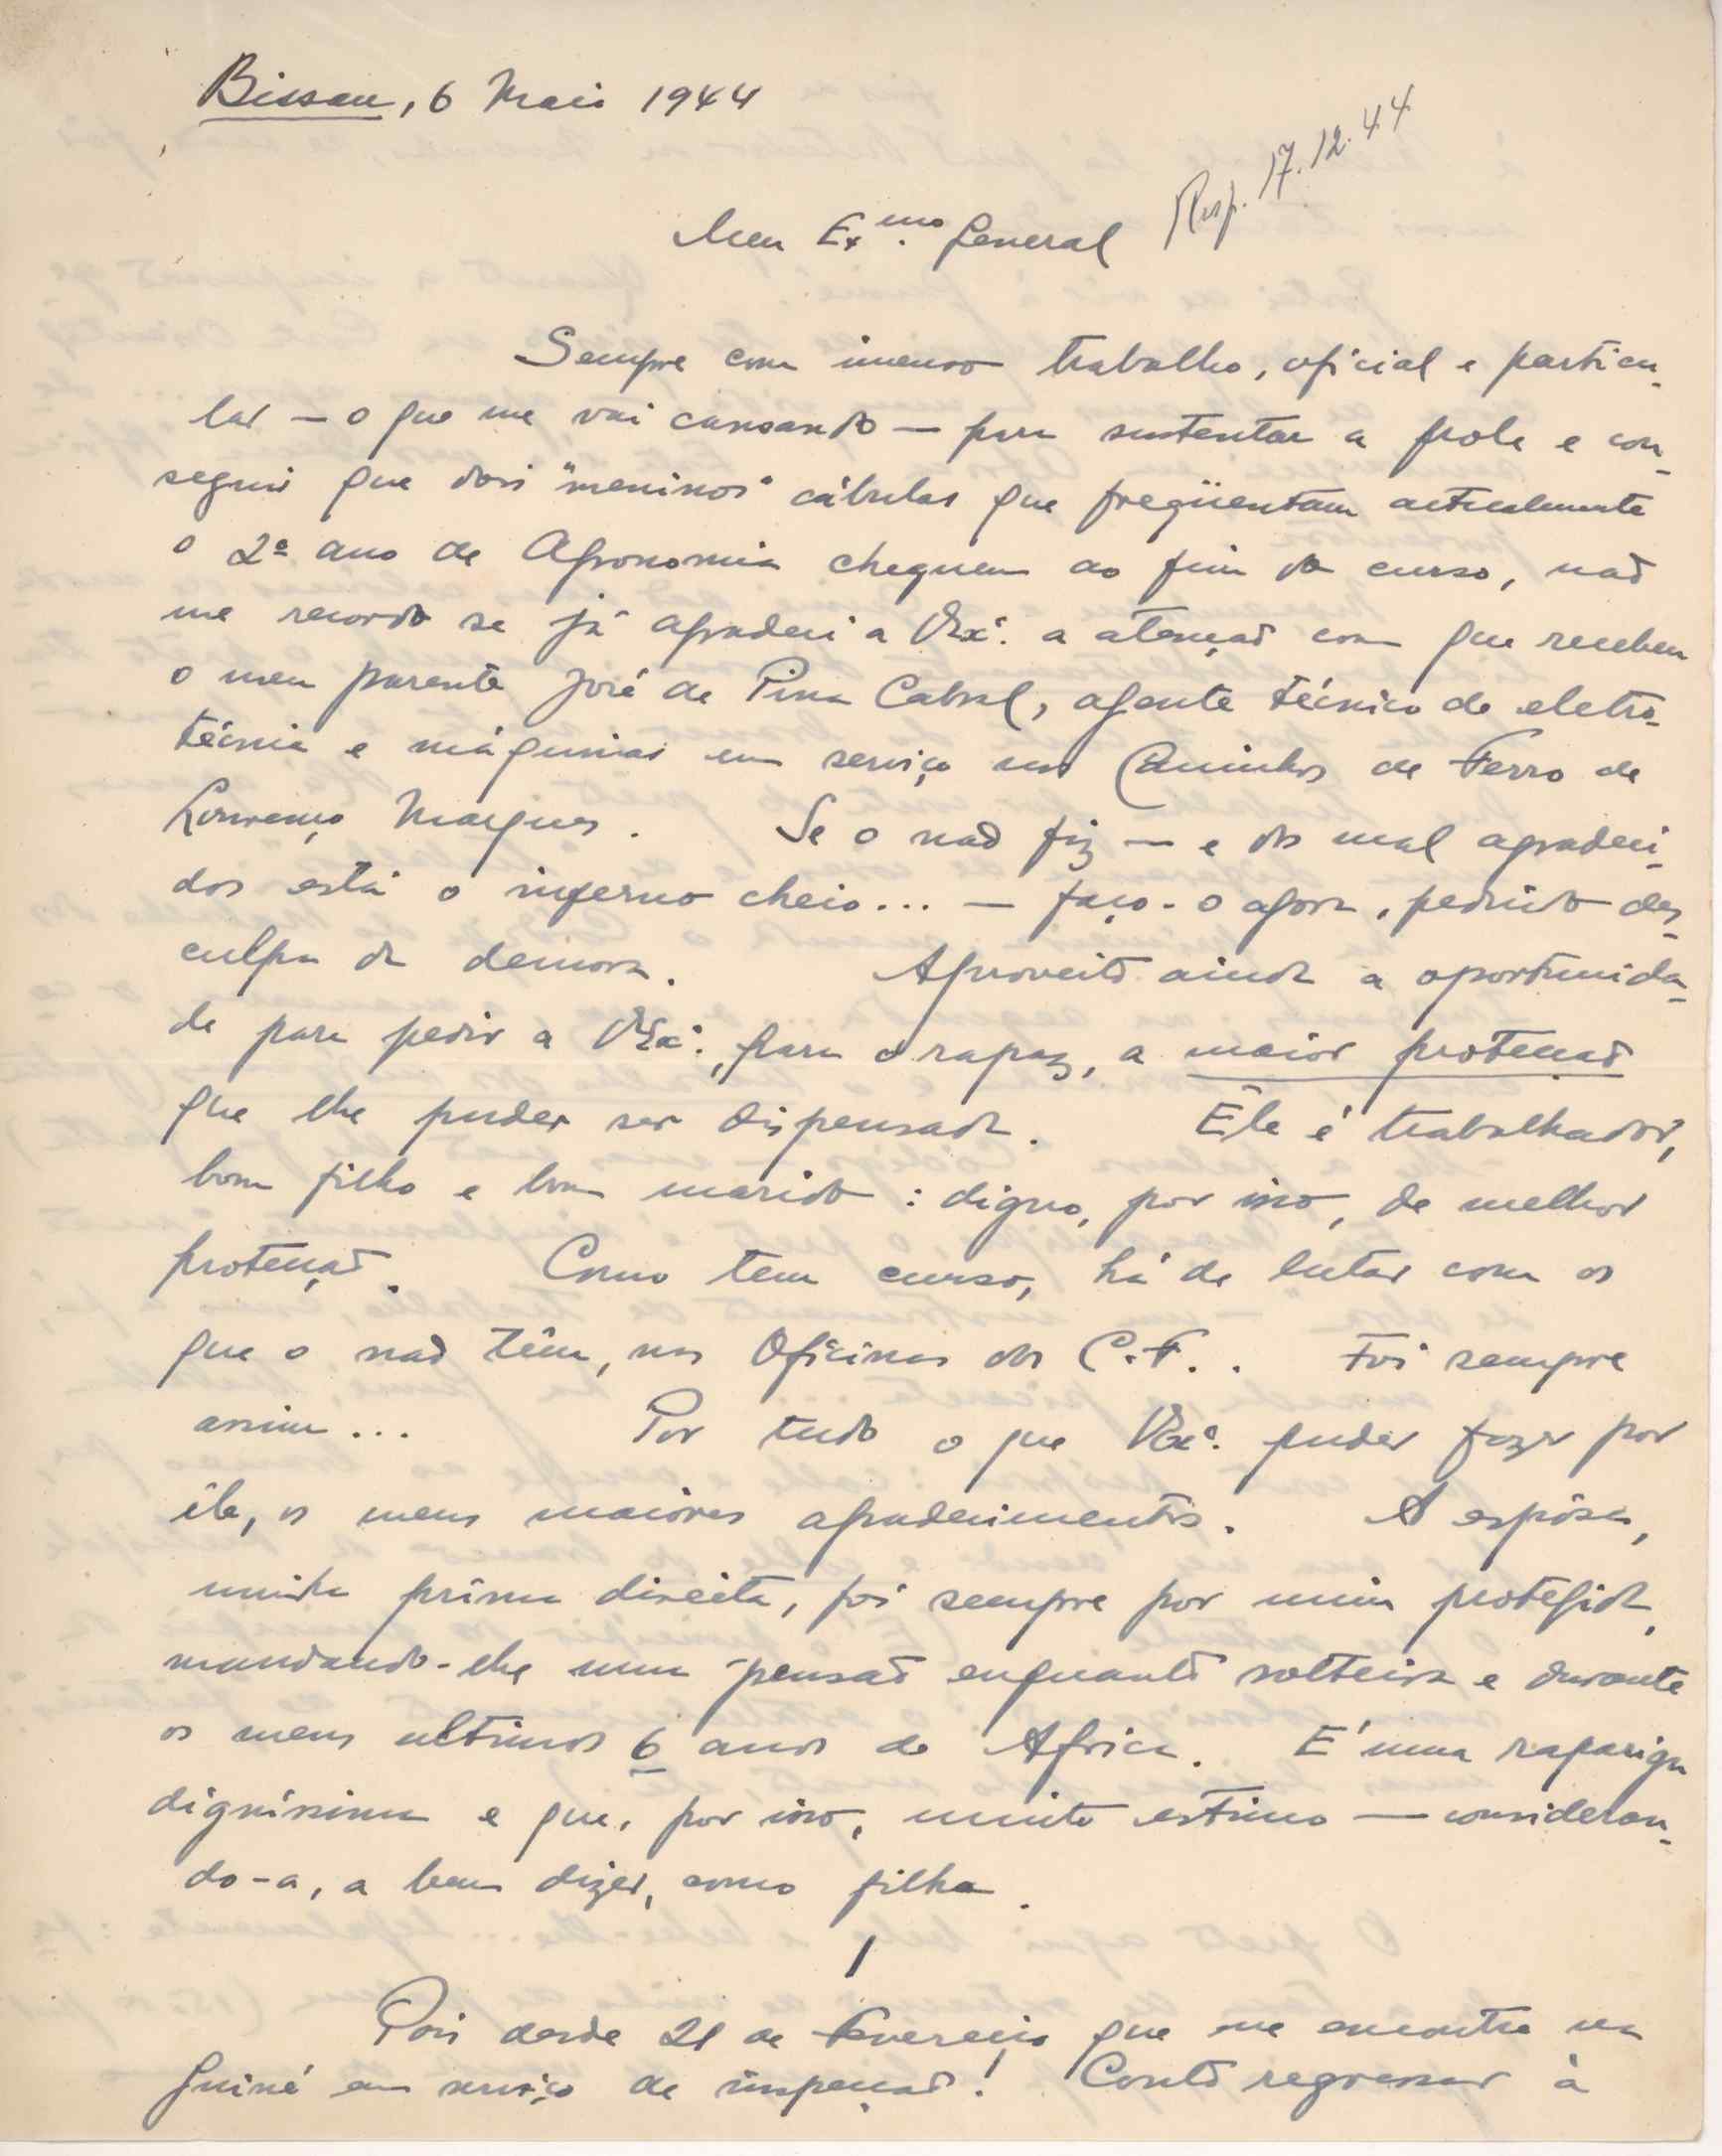 Bissau, 6 Maio 1944
Resp. 17.12.44
Meu Ex.mo General
Sempre com imenso trabalho, oficial e particu-
lar — o que me vai cansando — para sustentar a prole e con-
seguir que dois "meninos" cábulas que freqüentam actualmente
o 2º ano de Agronomia cheguem ao fim do curso, não
me recordo se já agradeci a VExª. a atenção com que recebeu
o meu parente José de Pina Cabral, agente técnico de eletro-
técnia e máquinas em serviço nos Caminhos de Ferro de
Lourenço Marques. Se o não fiz — e dos mal agradeci-
dos está o inferno cheio... — faço-o agora, pedindo des-
culpa da demora. Aproveito ainda a oportunida-
de para pedir a VExª., para o rapaz, a maior protecção
que lhe puder ser dispensada. Êle é trabalhador,
bom filho e bom marido: digno, por isso, de melhor
protecção. Como tem curso, há de lutar com os
que o não têm, nas Oficinas dos C.F.. Foi sempre
assim... Por tudo o que VExª. puder fazer por
êle, os meus maiores agradecimentos. A espôsa,
minha prima direita, foi sempre por mim protegida,
mandando-lhe uma pensão enquanto solteira e durante
os meus ultimos 6 anos de Africa. É uma rapariga
digníssima e que, por isso, muito estimo — consideran-
do-a, a bem dizer, como filha.
/
Pois desde 21 de Fevereiro que me encontro na
Guiné em serviço de inspecção! Conto regressar à